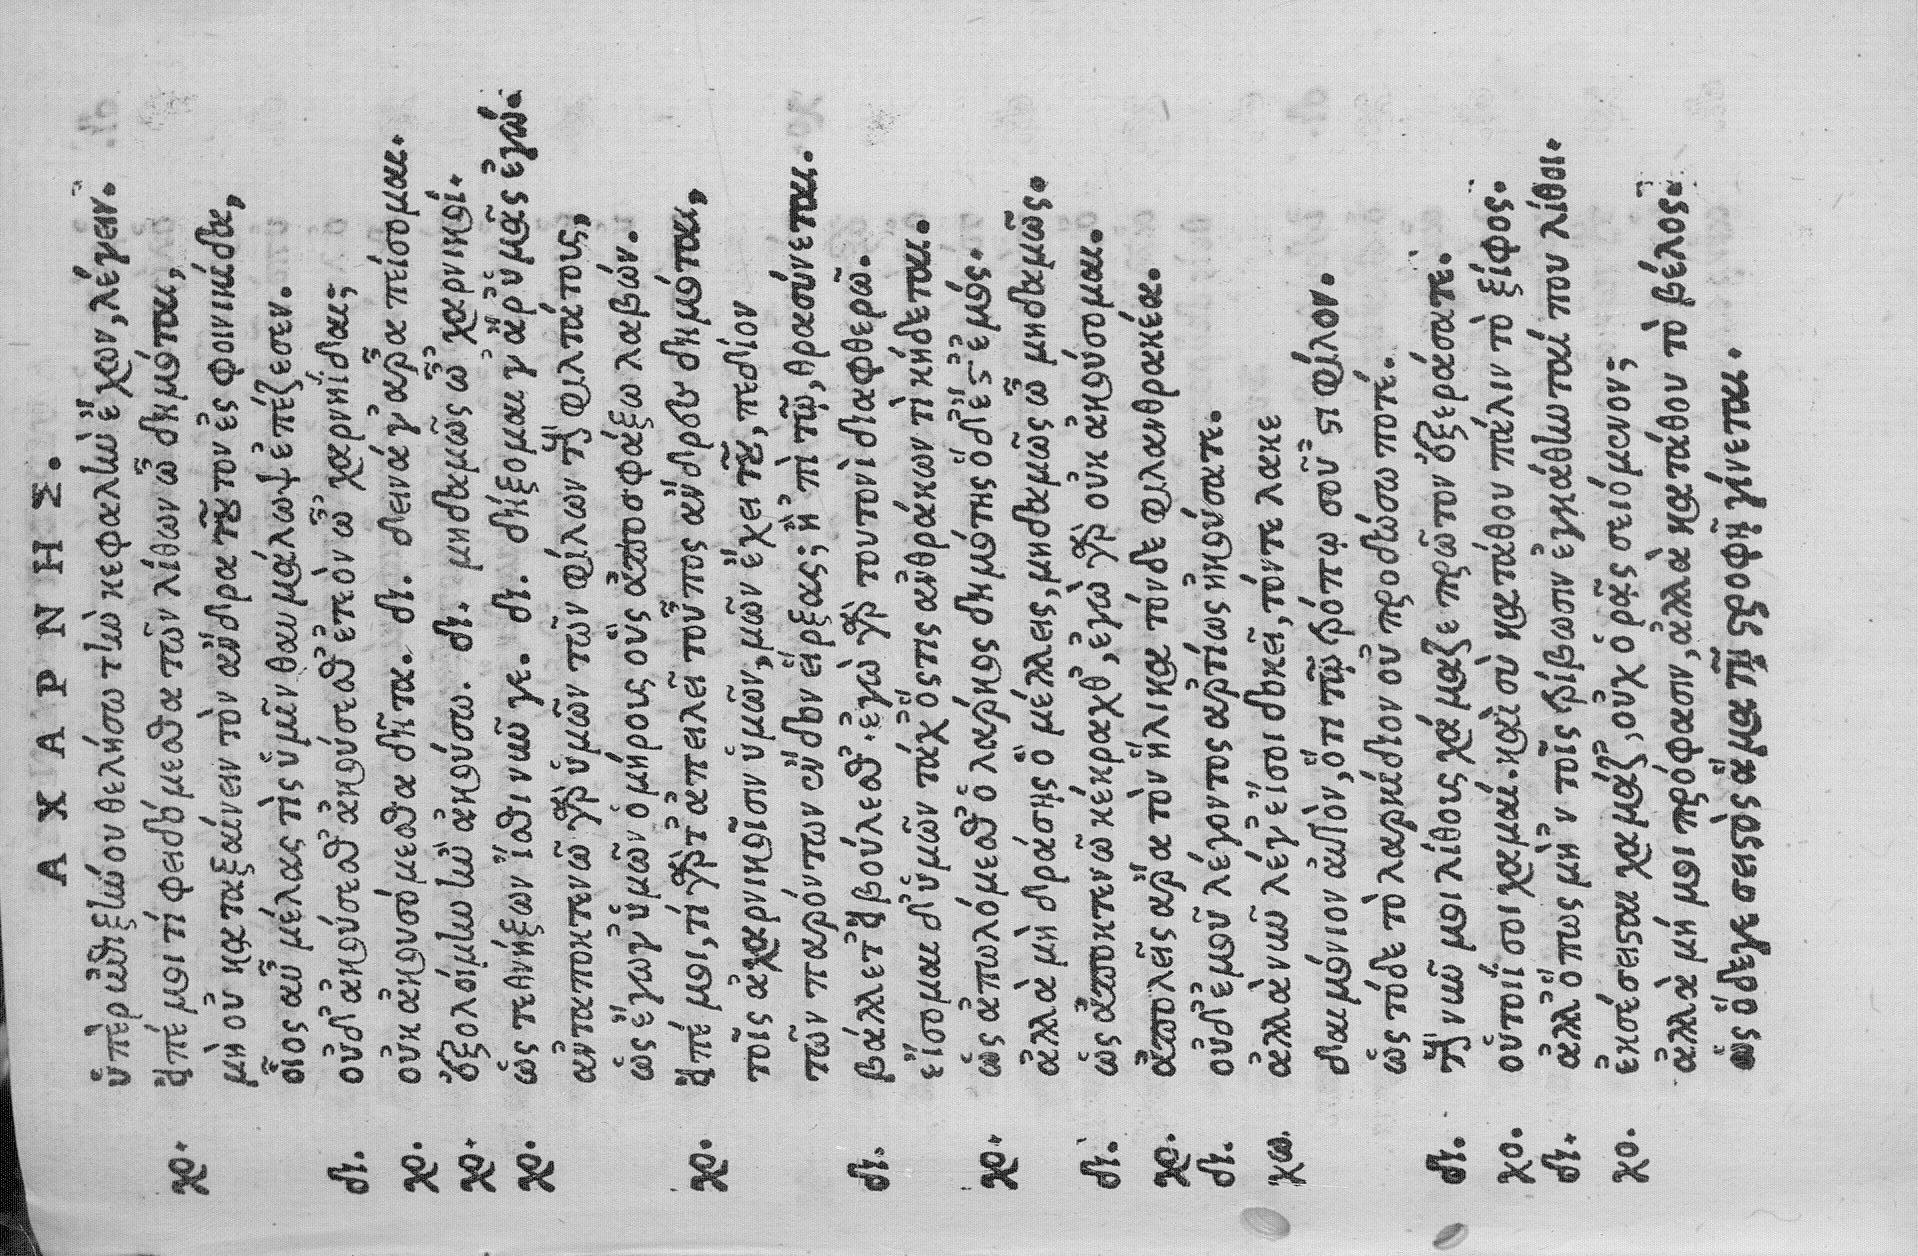 ΑΧΑΡΝΗΣ.
ὑπὲρ ἐπιξήνου θελήσω τὴν κεφαλὴν ἔχων, λέγειν.
χο. εἰπέ μοι τί φειδόμεσθα τῶν λίθων ὦ δημόται,
μὴ οὐ καταξαίνειν τὸν ἄνδρα τοῦτον ἐς φοινικίδα,
οἷος αὖ μέλας τὶς ὑμῖν θαυμάλωψ ἐπέζεσεν.
δι. οὐδ' ἀκούσεσθ' ἀκούσεσθ' ἐπεὸν ὦ χαρνηΐδαι;
χο. οὐκ ἀκουσόμεσθα δῆτα. δι. δεινά γ' ἄρα πείσομαι.
χο. ἐξολοίμην ἢν ἀκούσω. δι. μηδαμῶς ὦ χαρνικοί.
χο. ὡς τεθνήξων ἴσθι νυνί γε. δι. δήξομαι γ' ἄρ' ὑμᾶς ἐγώ.
ἀνταποκτενῶ γὰρ ὑμῶν τῶν φίλων τοὺς φιλτάτους,
ὡς ἔγωγ' ὑμῶν ὁμήρους οὓς ἀποσφάξω λαβών.
χο. εἰπέ μοι, τί γὰρ τ' ἀπειλεῖ τοὖπος ἄνδρου δημόται,
τοῖς ἀχαρνικοῖσιν ὑμῶν, μῶν ἔχει του, πεδίον
τῶν παρόντων ἔνδον εἴρξας; ἢ 'πὶ τῷ, θρασύνεται.
δι. βάλλετ' εἰ βούλεσθ'. ἐγὼ γὰρ τουτονὶ διαφθερῶ.
εἴσομαι δ' ὑμῶν τάχ' ὅστις ἀνθράκων τὶ κήδεται.
χο. ὡς ἀπωλόμεσθ' ὁ λαρκὸς δημότης ὅδ' ἔστ' ἐμός.
ἀλλὰ μὴ δράσῃς ὃ μέλλεις, μηδαμῶς ὦ μηδαμῶς.
δι. ὡς ἀποκτενῶ κέκραχθ', ἐγὼ γὰρ οὐκ ἀκούσομαι.
χο. ἀπολεῖς ἄρα τὸν ἥλικα τόνδε φιλανθρακέα.
δι. οὐδ' ἐμοῦ λέγοντος ἀρτίως ἠκούσατε.
χω. ἀλλὰ νῦν λέγ' εἴ σοι δοκεῖ, τόντε λακε
δαιμόνιον αὐτὸν, ὅτι τῷ τρόπῳ σοῦ 'στι φίλον.
ὡς τόδε τὸ λαρκίδιον οὐ προδώσω ποτέ.
δι. τοὺς νῦν μοι λίθους χάμαζε πρῶτον ἐξεράσατε.
χο. οὑτοιΐ σοι χαμαί. καὶ σὺ κατάθου πάλιν τὸ ξίφος.
δι. ἀλλ' ὅπως μὴ 'ν τοῖς τρίβωσιν ἐγκάθηνταί που λίθοι.
χο. ἐκσέσεισται χαμάζ', οὐχ ὁρᾷς σειόμενον;
ἀλλὰ μή μοι πρόφασιν, ἀλλὰ κατάθου τὸ βέλος.
ὡς ὅδε γε σειστὸς ἅμα τῇ στροφῇ γίνεται.